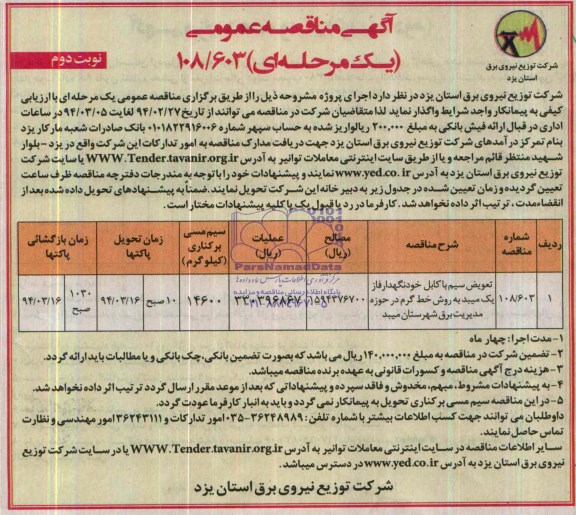 آگهی مناقصه عمومی
(یک مرحله‌ای) ۱۰۸/۶۰۳
نوبت دوم
شرکت توزیع نیروی برق
استان یزد
شرکت توزیع نیروی برق استان یزد در نظر دارد اجرای پروژه مشروحه ذیل را از طریق برگزاری مناقصه عمومی یک مرحله‌ای با ارزیابی
کیفی به پیمانکار واجد شرایط واگذار نماید لذا متقاضیان شرکت در مناقصه می توانند از تاریخ ۹۴/۰۲/۲۷ لغایت ۹۴/۰۳/۰۵ در ساعات
اداری در قبال ارائه فیش بانکی به مبلغ ۲۰۰,۰۰۰ ریال واریز شده به حساب سپهر شماره ۰۱۰۱۸۲۲۹۱۶۰۰۶ بانک صادرات شعبه مارکار یزد
بنام تمرکز درآمدهای شرکت توزیع نیروی برق استان یزد جهت دریافت مدارک مناقصه به امور تدارکات این شرکت واقع در یزد - بلوار
شهید منتظر قائم مراجعه و یا از طریق سایت اینترنتی معاملات توانیر به آدرس WWW.Tender.tavanir.org.ir یا سایت شرکت
توزیع نیروی برق استان یزد به آدرس www.yed.co.ir نموده و پیشنهادات خود را با توجه به مندرجات دفترچه مناقصه ظرف ساعت
تعیین گردیده و زمان تعیین شده در جدول زیر به دبیر خانه این شرکت تحویل نمایند. ضمناً به پیشنهادهای تحویل داده شده بعد از
انقضاء مدت، ترتیب اثر داده نخواهد شد. کارفرما در رد یا قبول یک یا کلیه پیشنهادات مختار است.
ردیف | شماره مناقصه | شرح مناقصه | مصالح (ریال) | عملیات (ریال) | سیم مسی برکناری (کیلوگرم) | زمان تحویل پاکتها | زمان بازگشائی پاکتها
۱ | ۱۰۸/۶۰۳ | تعویض سیم با کابل خودنگهدار فاز یک میبد به روش خط گرم در حوزه مدیریت برق شهرستان میبد | ۱۴۶۰۰ | ۱۰ صبح ۹۴/۰۳/۱۶ | ۱۰:۳۰ صبح ۹۴/۰۳/۱۶
ParsNamadData
پایگاه اطلاع رسانی مناقصه و مزایده
۱- مدت اجرا: چهار ماه
۲- تضمین شرکت در مناقصه به مبلغ ۱۴۰,۰۰۰,۰۰۰ ریال می باشد که بصورت تضمین بانکی، چک بانکی و یا مطالبات باید ارائه گردد.
۳- هزینه درج آگهی مناقصه و کسورات قانونی به عهده برنده مناقصه میباشد.
۴- به پیشنهادات مشروط، مبهم، مخدوش و فاقد سپرده و پیشنهاداتی که بعد از موعد مقرر ارسال گردد ترتیب اثر داده نخواهد شد.
۵- در این مناقصه سیم مسی برکناری تحویل به پیمانکار نمی گردد و باید به انبار کارفرما عودت گردد.
داوطلبان می توانند جهت کسب اطلاعات بیشتر با شماره تلفن: ۳۶۲۴۸۹۸۹-۰۳۵ امور تدارکات و ۳۶۲۴۳۱۱۱ امور مهندسی و نظارت
تماس حاصل نمایند.
سایر اطلاعات مناقصه در سایت اینترنتی معاملات توانیر به آدرس WWW.Tender.tavanir.org.ir یا در سایت شرکت توزیع
نیروی برق استان یزد به آدرس www.yed.co.ir در دسترس میباشد.
شرکت توزیع نیروی برق استان یزد